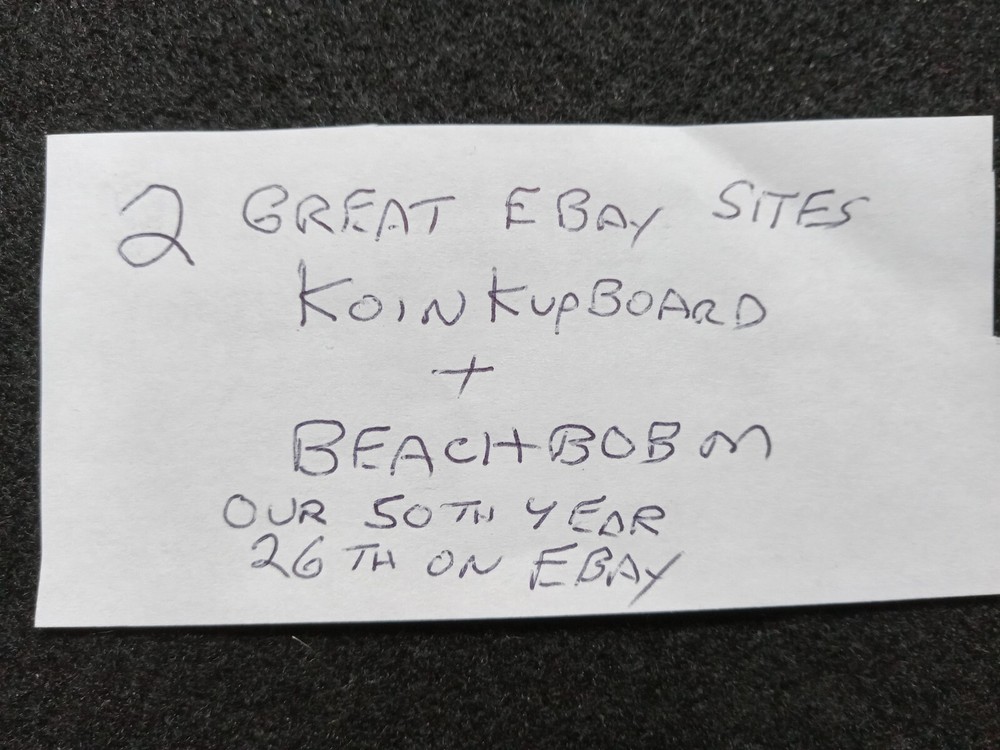 2 GREAT EBAY SITES
KOINKUPBOARD
+
BEACHBOBM
OUR 50TH YEAR
26TH ON EBAY